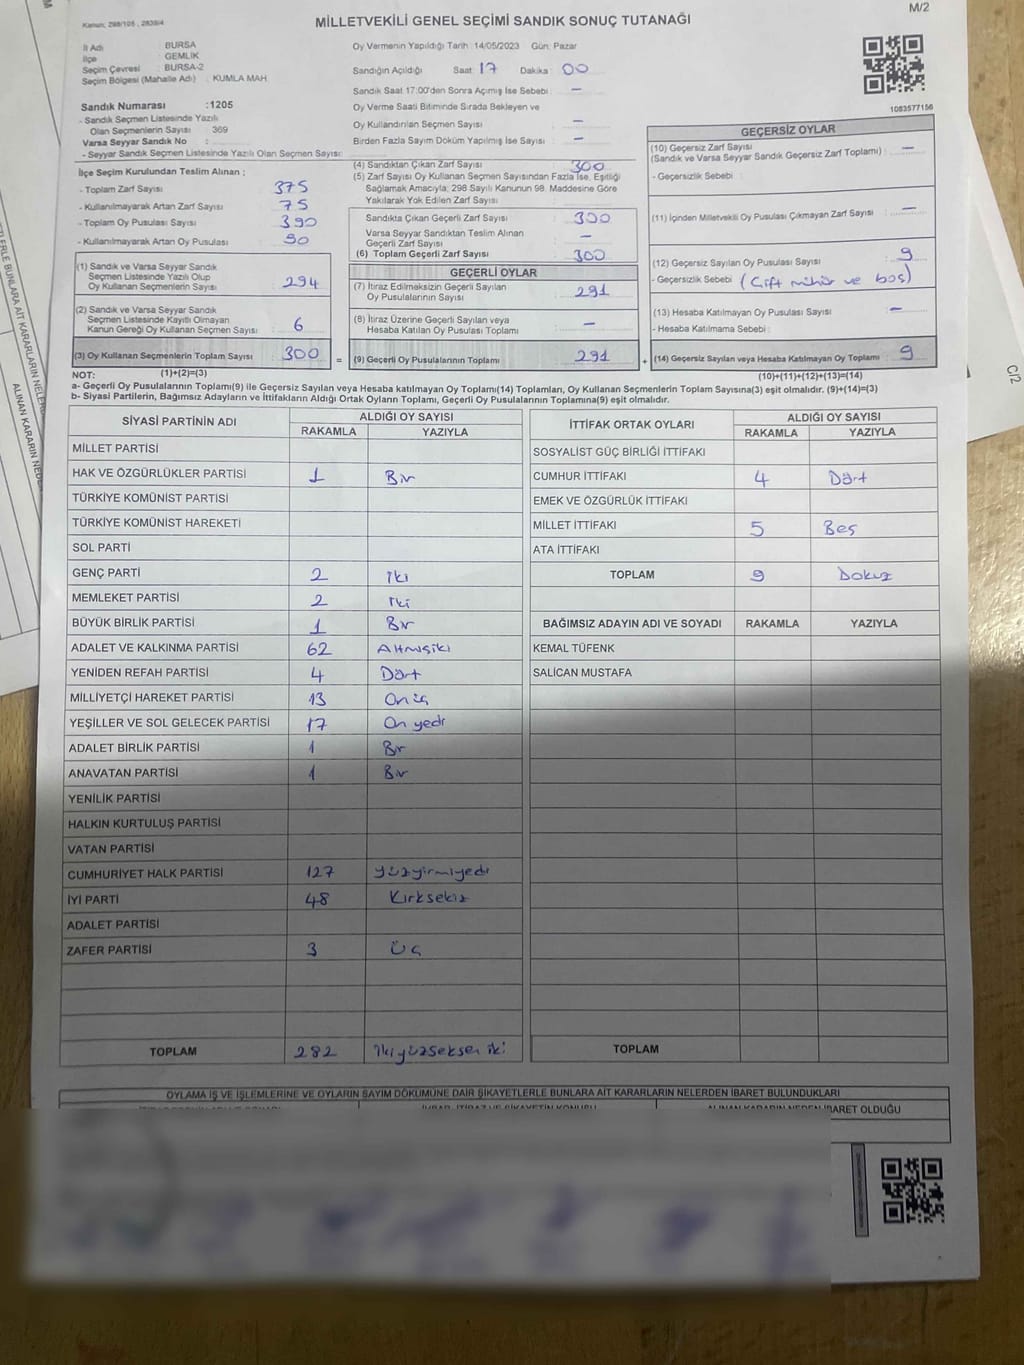 M/2
Kanun; 298/105 , 2839/4
MİLLETVEKİLİ GENEL SEÇİMİ SANDIK SONUÇ TUTANAĞI
İl Adı : BURSA
İlçe : GEMLİK
Seçim Çevresi : BURSA-2
Seçim Bölgesi (Mahalle Adı) : KUMLA MAH.
Sandık Numarası :1205
- Sandık Seçmen Listesinde Yazılı
Olan Seçmenlerin Sayısı : 369
Varsa Seyyar Sandık No :
- Seyyar Sandık Seçmen Listesinde Yazılı Olan Seçmen Sayısı:
İlçe Seçim Kurulundan Teslim Alınan ;
- Toplam Zarf Sayısı : 375
- Kullanılmayarak Artan Zarf Sayısı : 75
- Toplam Oy Pusulası Sayısı : 390
- Kullanılmayarak Artan Oy Pusulası : 90
(1) Sandık ve Varsa Seyyar Sandık
Seçmen Listesinde Yazılı Olup
Oy Kullanan Seçmenlerin Sayısı : 294
(2) Sandık ve Varsa Seyyar Sandık
Seçmen Listesinde Kayıtlı Olmayan
Kanun Gereği Oy Kullanan Seçmen Sayısı : 6
(3) Oy Kullanan Seçmenlerin Toplam Sayısı : 300 =
Oy Vermenin Yapıldığı Tarih :14/05/2023 Gün: Pazar
Sandığın Açıldığı Saat 17 Dakika 00
Sandık Saat 17:00'den Sonra Açımış İse Sebebi : -
Oy Verme Saati Bitiminde Sırada Bekleyen ve
Oy Kullandırılan Seçmen Sayısı : -
Birden Fazla Sayım Döküm Yapılmış İse Sayısı : -
(4) Sandıktan Çıkan Zarf Sayısı : 300
(5) Zarf Sayısı Oy Kullanan Seçmen Sayısından Fazla İse, Eşitliği
Sağlamak Amacıyla, 298 Sayılı Kanunun 98. Maddesine Göre
Yakılarak Yok Edilen Zarf Sayısı :
Sandıkta Çıkan Geçerli Zarf Sayısı : 300
Varsa Seyyar Sandıktan Teslim Alınan
Geçerli Zarf Sayısı : -
(6) Toplam Geçerli Zarf Sayısı : 300
GEÇERLİ OYLAR
(7) İtiraz Edilmeksizin Geçerli Sayılan
Oy Pusulalarının Sayısı : 291
(8) İtiraz Üzerine Geçerli Sayılan veya
Hesaba Katılan Oy Pusulası Toplamı : -
(9) Geçerli Oy Pusulalarının Toplamı : 291 +
1083577156
GEÇERSİZ OYLAR
(10) Geçersiz Zarf Sayısı
(Sandık ve Varsa Seyyar Sandık Geçersiz Zarf Toplamı) : -
- Geçersizlik Sebebi :
(11) İçinden Milletvekili Oy Pusulası Çıkmayan Zarf Sayısı : -
(12) Geçersiz Sayılan Oy Pusulası Sayısı : 9
- Geçersizlik Sebebi : (Çift mühür ve boş)
(13) Hesaba Katılmayan Oy Pusulası Sayısı : -
- Hesaba Katılmama Sebebi :
(14) Geçersiz Sayılan veya Hesaba Katılmayan Oy Toplamı : 9
NOT: (1)+(2)=(3) (10)+(11)+(12)+(13)=(14)
a- Geçerli Oy Pusulalarının Toplamı(9) ile Geçersiz Sayılan veya Hesaba katılmayan Oy Toplamı(14) Toplamları, Oy Kullanan Seçmenlerin Toplam Sayısına(3) eşit olmalıdır. (9)+(14)=(3)
b- Siyasi Partilerin, Bağımsız Adayların ve İttifakların Aldığı Ortak Oyların Toplamı, Geçerli Oy Pusulalarının Toplamına(9) eşit olmalıdır.
SİYASİ PARTİNİN ADI ALDIĞI OY SAYISI
RAKAMLA YAZIYLA
MİLLET PARTİSİ
HAK VE ÖZGÜRLÜKLER PARTİSİ 1 Bir
TÜRKİYE KOMÜNİST PARTİSİ
TÜRKİYE KOMÜNİST HAREKETİ
SOL PARTİ
GENÇ PARTİ 2 iki
MEMLEKET PARTİSİ 2 iki
BÜYÜK BİRLİK PARTİSİ 1 Bir
ADALET VE KALKINMA PARTİSİ 62 Altmışiki
YENİDEN REFAH PARTİSİ 4 Dört
MİLLİYETÇİ HAREKET PARTİSİ 13 Onüç
YEŞİLLER VE SOL GELECEK PARTİSİ 17 On yedi
ADALET BİRLİK PARTİSİ 1 Bir
ANAVATAN PARTİSİ 1 Bir
YENİLİK PARTİSİ
HALKIN KURTULUŞ PARTİSİ
VATAN PARTİSİ
CUMHURİYET HALK PARTİSİ 127 yüzyirmiyedi
İYİ PARTİ 48 Kırksekiz
ADALET PARTİSİ
ZAFER PARTİSİ 3 Üç
TOPLAM 282 ikiyüzseksen iki
İTTİFAK ORTAK OYLARI ALDIĞI OY SAYISI
RAKAMLA YAZIYLA
SOSYALİST GÜÇ BİRLİĞİ İTTİFAKI
CUMHUR İTTİFAKI 4 Dört
EMEK VE ÖZGÜRLÜK İTTİFAKI
MİLLET İTTİFAKI 5 Beş
ATA İTTİFAKI
TOPLAM 9 Dokuz
BAĞIMSIZ ADAYIN ADI VE SOYADI RAKAMLA YAZIYLA
KEMAL TÜFENK
SALİCAN MUSTAFA
TOPLAM
OYLAMA İŞ VE İŞLEMLERİNE VE OYLARIN SAYIM DÖKÜMÜNE DAİR ŞİKAYETLERLE BUNLARA AİT KARARLARIN NELERDEN İBARET BULUNDUKLARI
ALINAN KARARIN NEDEN İBARET OLDUĞU
C/2